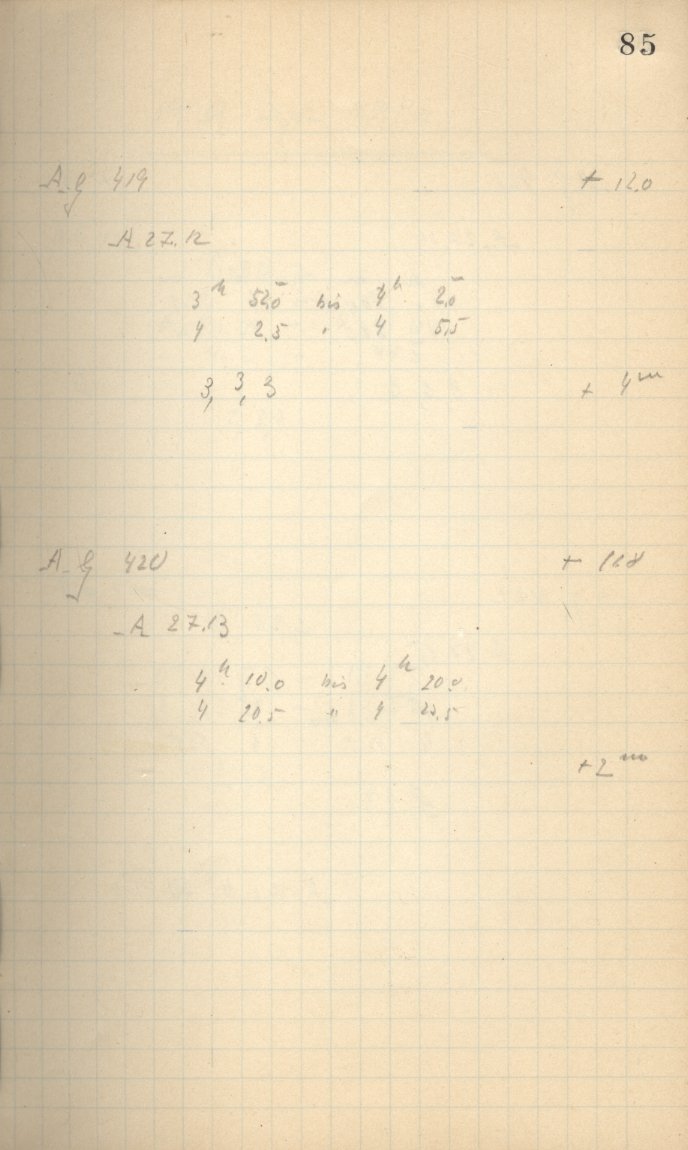 85
A.g 419 + 12.0
A 27.12
3h 52.0 bis 4h 2.0
4 2.5 " 4 5.5
3, 3, 3 + 4m
A.g 420 + 11.8
A 27.13
4h 10.0 bis 4h 20.0
4 20.5 " 4 23.5
+ 2m